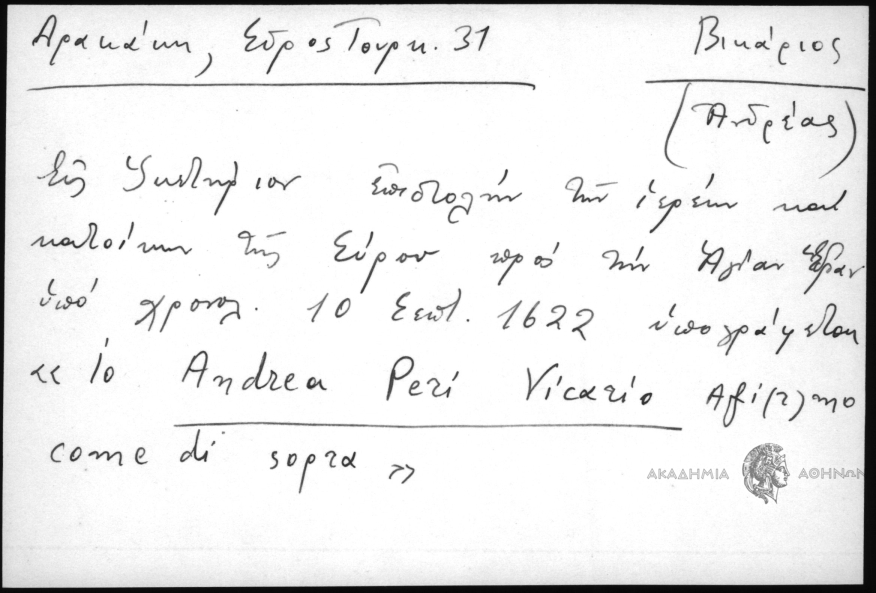 Δρακάκη, Σῦρος Τουρκ. 31
Βικάριος
(Ἀνδρέας)
Εἰς Ἱκετήριον ἐπιστολήν τῶν ἱερέων καί
κατοίκων τῆς Σύρου πρός τήν Ἁγίαν Ἕδραν
ὑπό χρονολ. 10 Σεπτ. 1622 ὑπογράφεται
<< Io Andrea Peri Vicario Afi(r)mo
come di sopra >>
ΑΚΑΔΗΜΙΑ ΑΘΗΝΩΝ